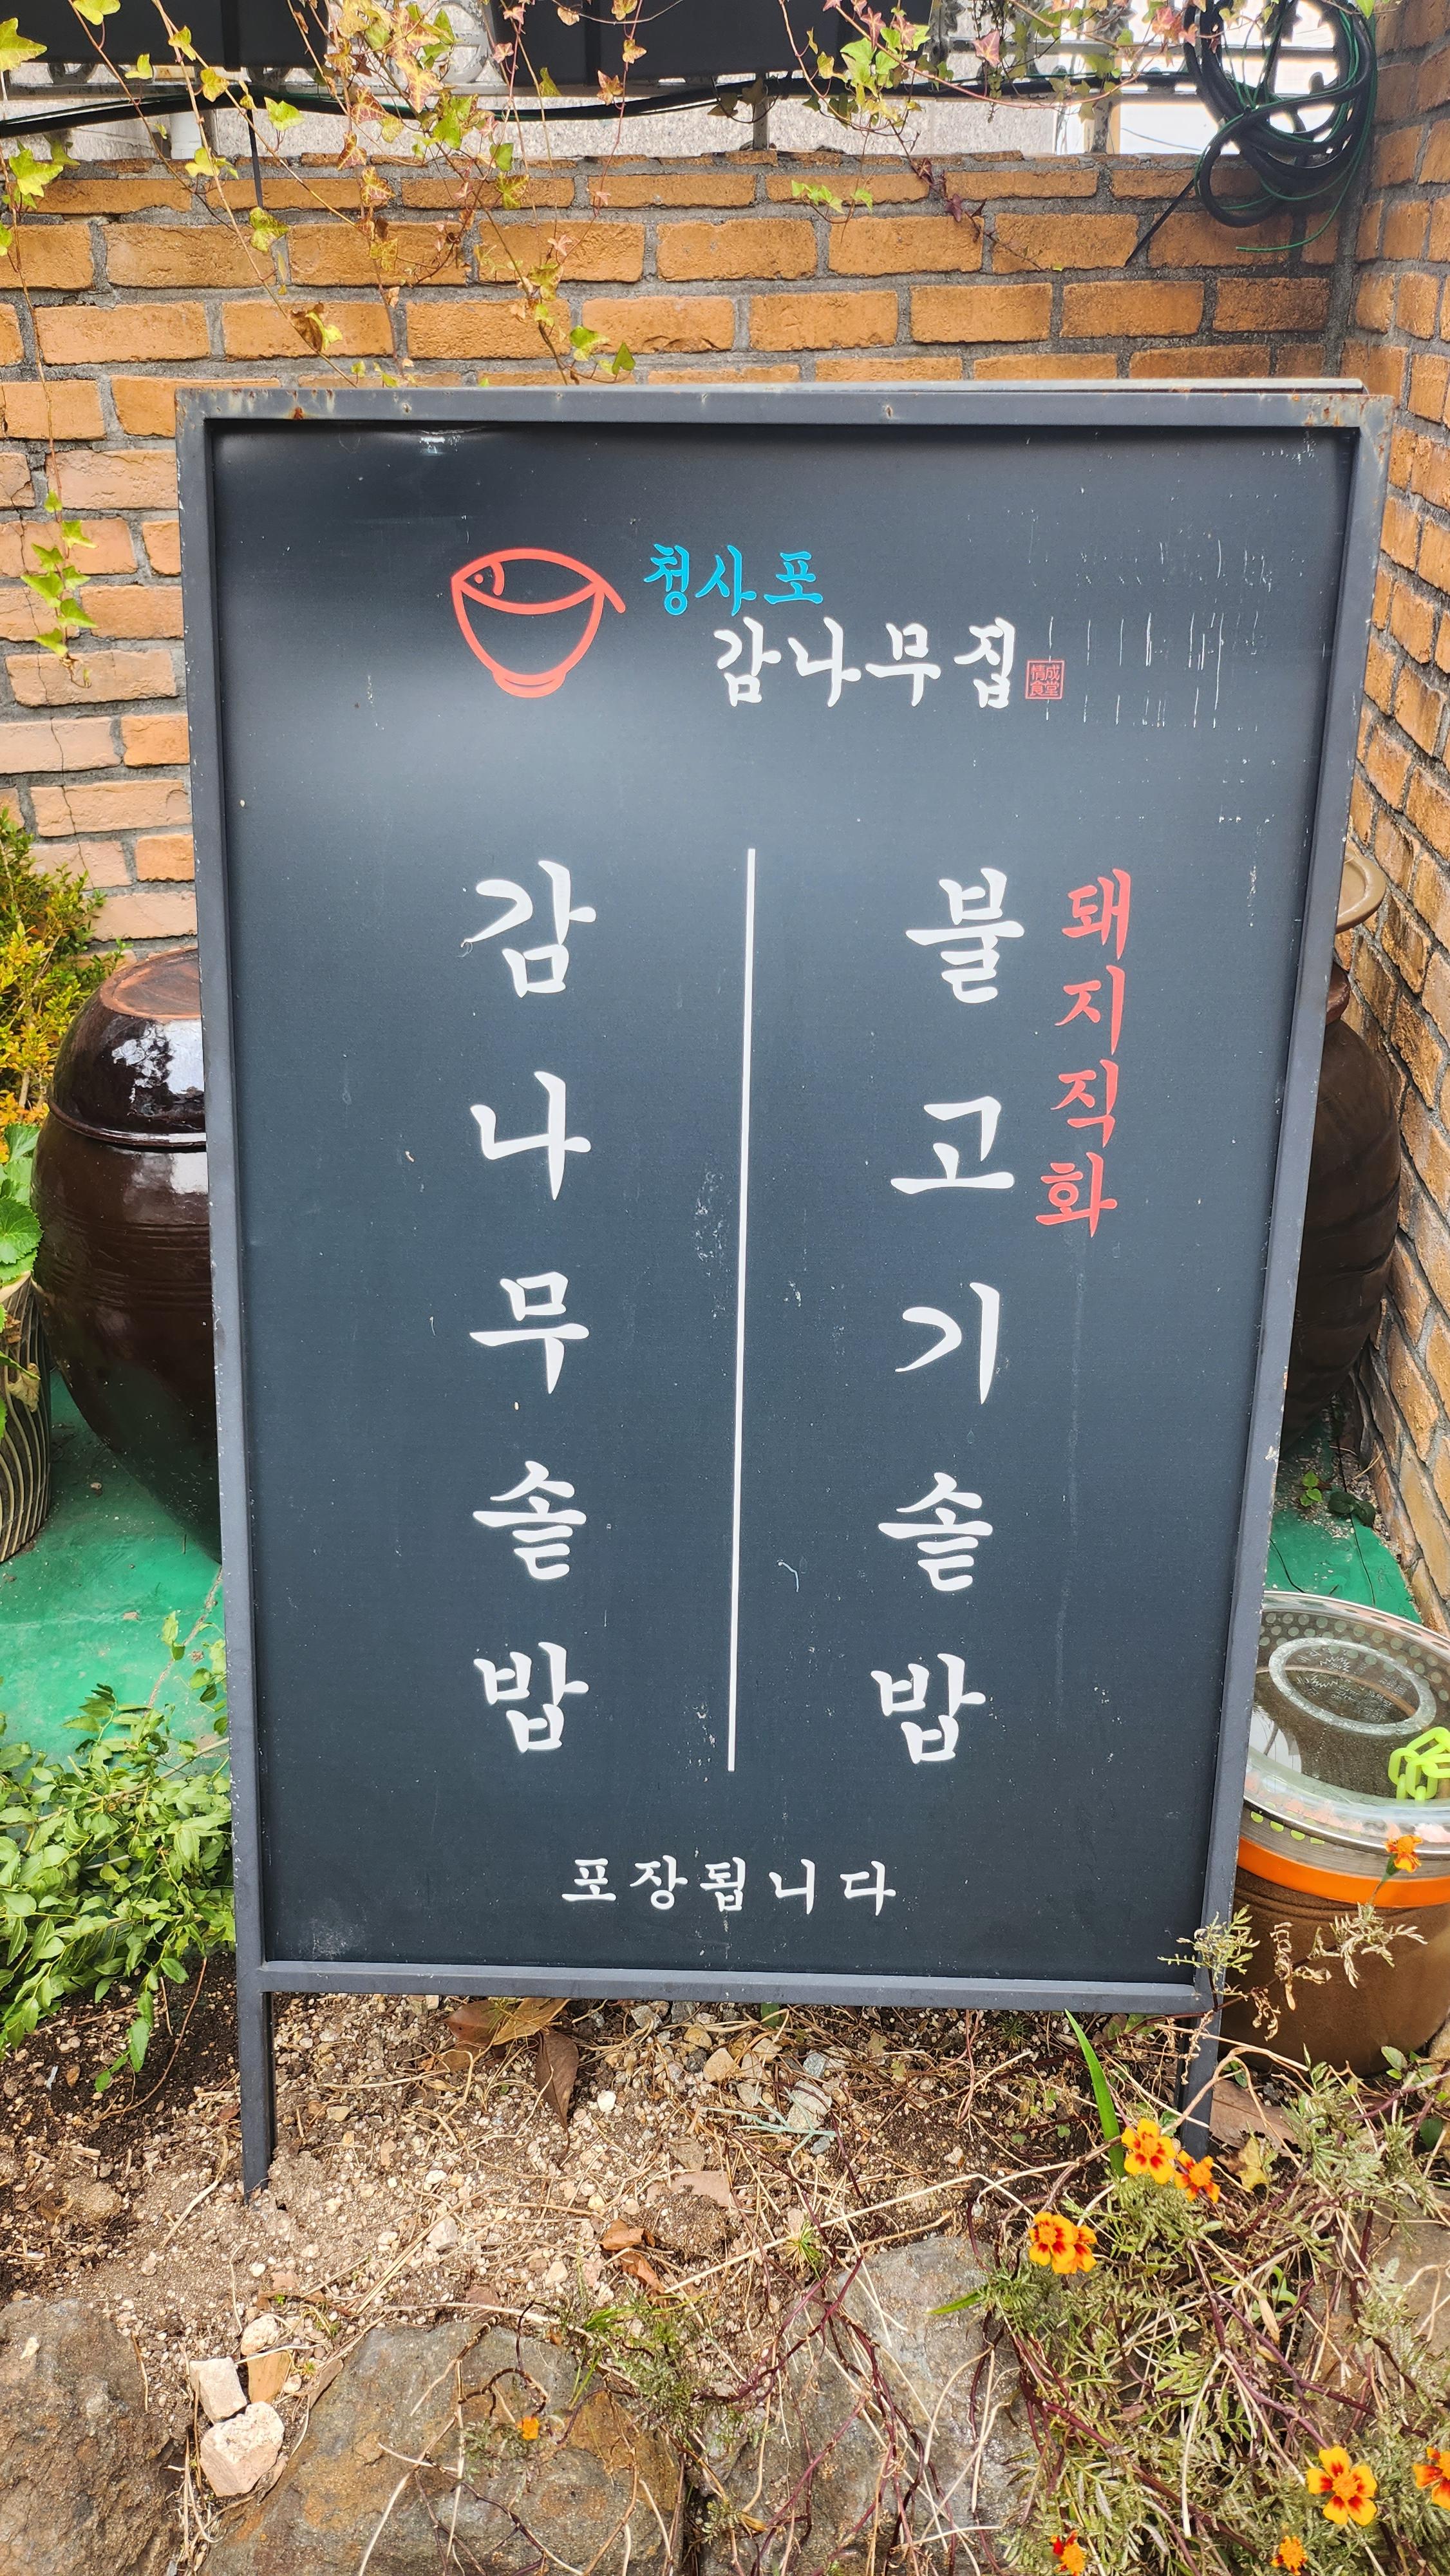 청사포
감나무집
情成
食堂
감나무솥밥
돼지직화
불고기솥밥
포장됩니다